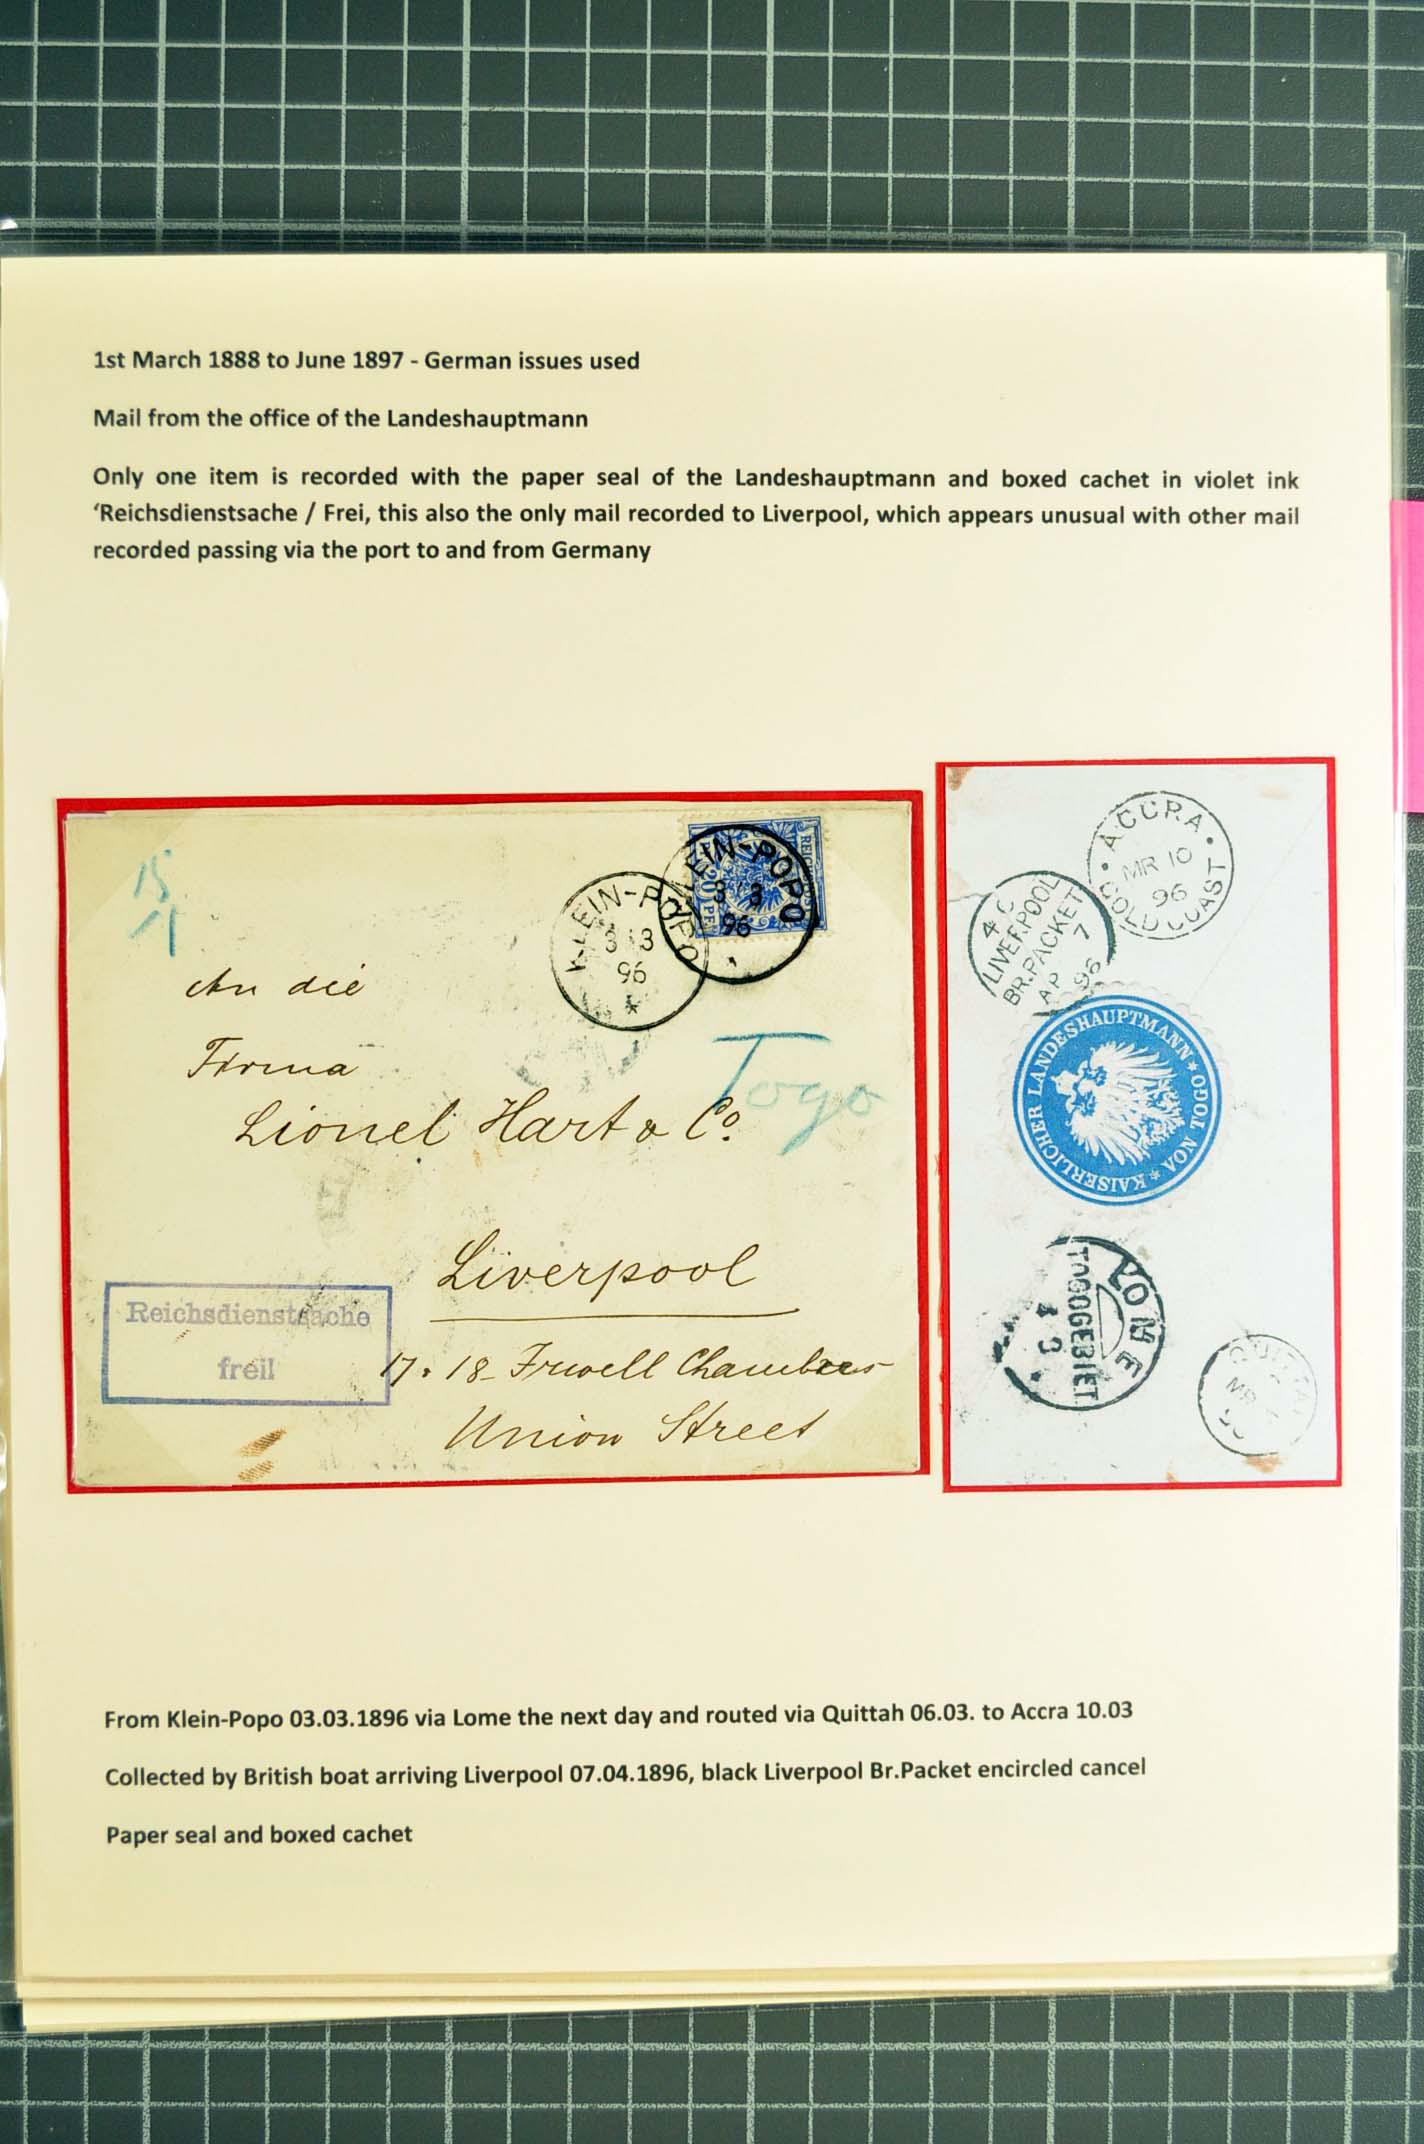 1st March 1888 to June 1897 - German issues used
Mail from the office of the Landeshauptmann
Only one item is recorded with the paper seal of the Landeshauptmann and boxed cachet in violet ink
‘Reichsdienstsache / Frei, this also the only mail recorded to Liverpool, which appears unusual with other mail
recorded passing via the port to and from Germany
KLEIN-POPO
3 3
96
KLEIN-POPO
3 3
96
20 PF
An die
Firma
Lionel Hart & Co.
Togo
Liverpool
17 . 18 Chambers
Union Street
Reichsdienstsache
freil
ACCRA
MR 10
96
GOLD COAST
4 C
LIVERPOOL
BR.PACKET
7
AP 96
KAISERLICHER LANDESHAUPTMANN * VON TOGO *
LOME
TOGOGEBIET
QUITTAH
MR
From Klein-Popo 03.03.1896 via Lome the next day and routed via Quittah 06.03. to Accra 10.03
Collected by British boat arriving Liverpool 07.04.1896, black Liverpool Br.Packet encircled cancel
Paper seal and boxed cachet